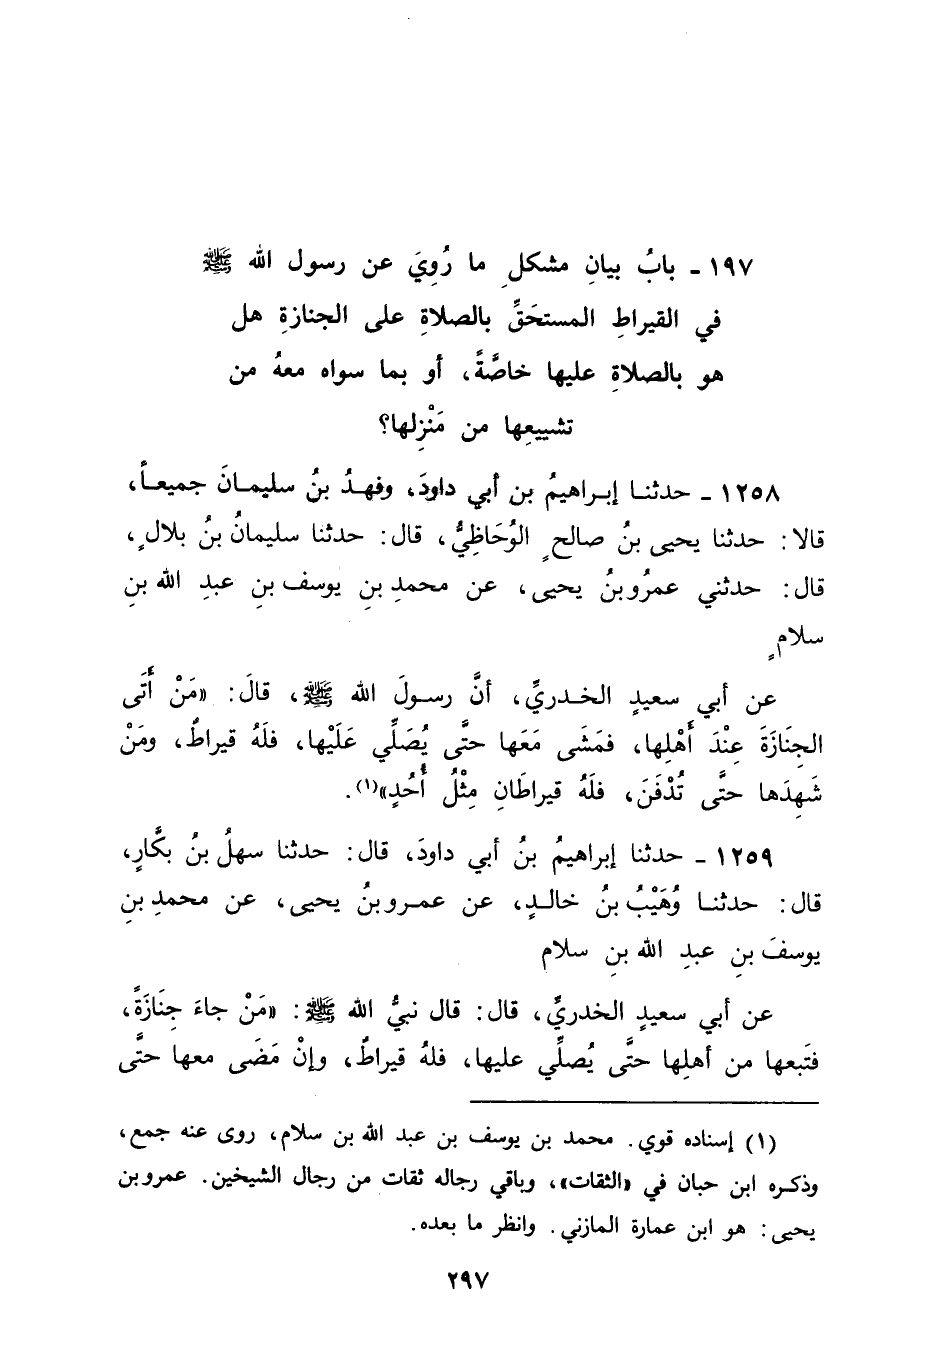 ١٩٧ - بابُ بيانِ مشكلِ ما رُوِيَ عن رسول الله ﷺ
في القيراطِ المستحَقِّ بالصلاةِ على الجنازةِ هل
هو بالصلاةِ عليها خاصَّةً، أو بما سواه معهُ من
تشييعِها من مَنْزِلها؟
١٢٥٨ - حدثنا إبراهيمُ بن أبي داودَ، وفهدُ بنُ سليمانَ جميعاً،
قالا: حدثنا يحيى بنُ صالحٍ الوُحَاظِيُّ، قال: حدثنا سليمانُ بنُ بلالٍ،
قال: حدثني عمرُو بنُ يحيى، عن محمدِ بنِ يوسف بنِ عبدِ الله بنِ
سلامٍ
عن أبي سعيدٍ الخدريِّ، أنَّ رسولَ الله ﷺ، قالَ: «مَنْ أَتَى
الجنَازَةَ عِنْدَ أَهْلِها، فمَشَى مَعَها حتَّى يُصَلِّي عَلَيْها، فلَهُ قيراطٌ، ومَنْ
شَهِدَها حتَّى تُدْفَنَ، فلَهُ قيراطَانِ مِثْلُ أُحُدٍ»(١).
١٢٥٩ - حدثنا إبراهيمُ بنُ أبي داودَ، قال: حدثنا سهلُ بنُ بكَّارٍ،
قال: حدثنا وُهَيْبُ بنُ خالدٍ، عن عمرو بنُ يحيى، عن محمدِ بنِ
يوسفَ بنِ عبدِ الله بنِ سلام
عن أبي سعيدٍ الخدريِّ، قال: قال نبيُّ الله ﷺ: «مَنْ جاءَ جِنَازَةً،
فتَبعها من أهلِها حتَّى يُصلِّي عليها، فلهُ قيراطٌ، وإنْ مَضَى معها حتَّى
(١) إسناده قوي. محمد بن يوسف بن عبد الله بن سلام، روى عنه جمع،
وذكره ابن حبان في «الثقات»، وباقي رجاله ثقات من رجال الشيخين. عمرو بن
يحيى: هو ابن عمارة المازني. وانظر ما بعده.
٢٩٧